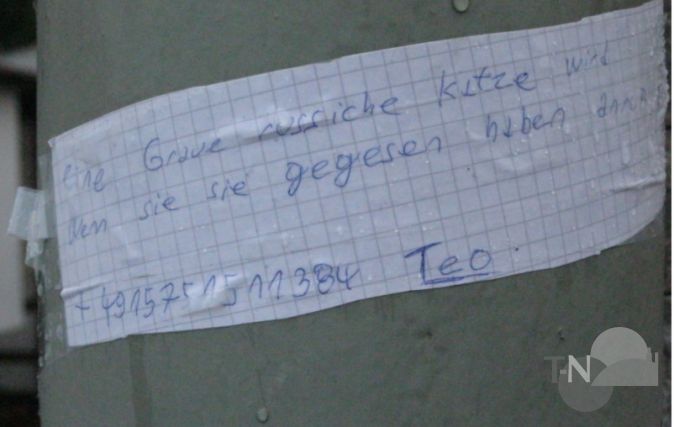 eine Graue russiche katze wird
Wen sie sie gegesen haben dann
+4915751511384 Teo
T-N